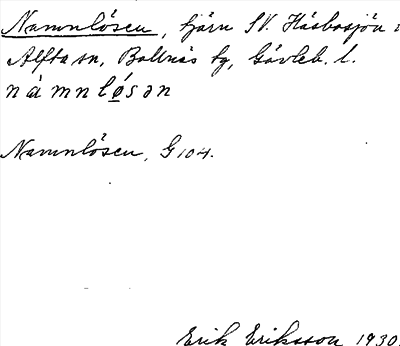 Namnlösen, tjärn SV. Håsbosjön i
Alfta sn, Bollnäs tg, Gävleb. l.
námnlø̣sən
Namnlösen, G 104.
Erik Eriksson 1930.